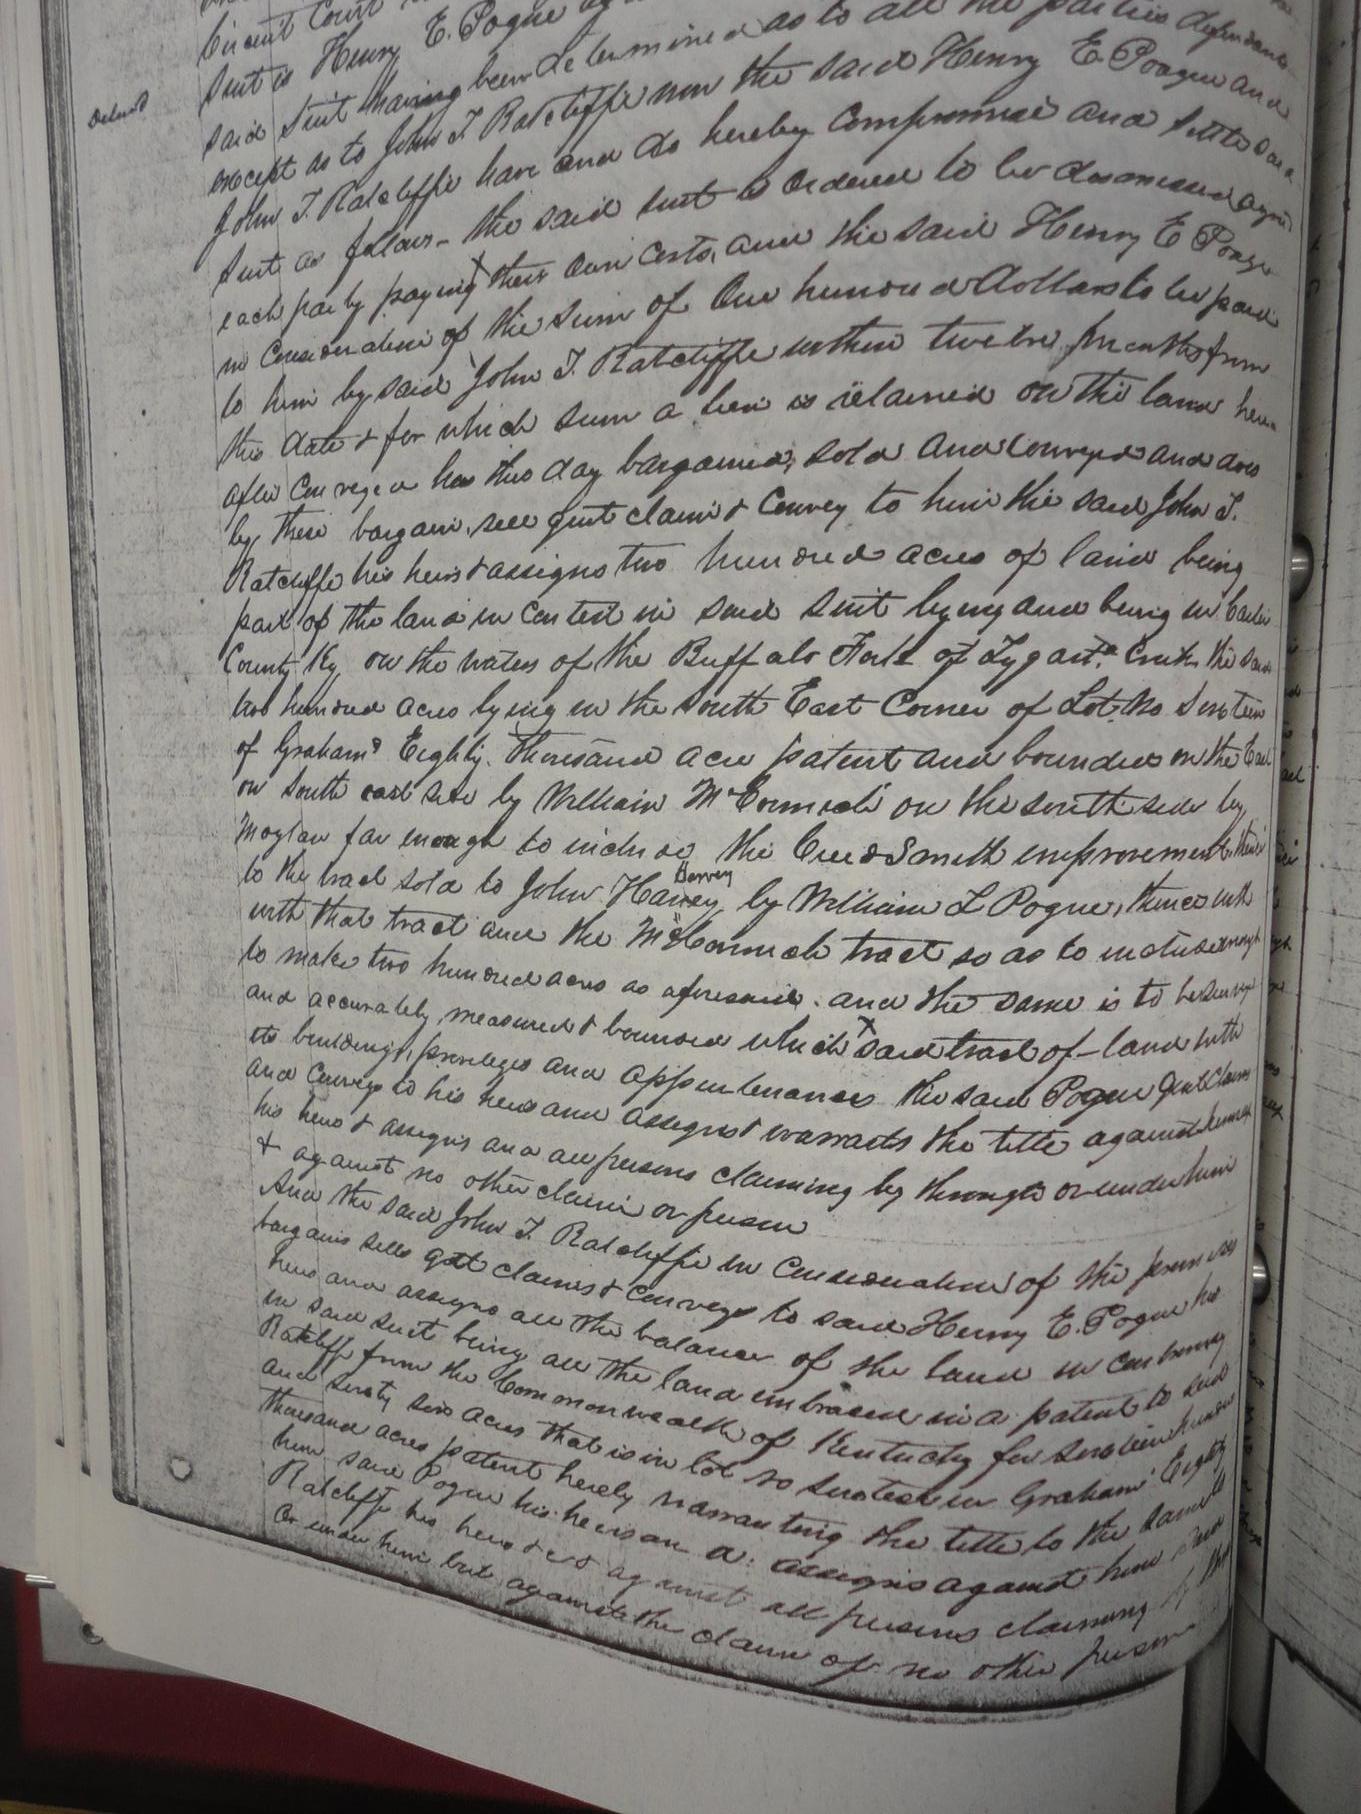 Circuit Court
Suit is Henry E. Pogue
said Suit having been determined as to all the parties defendants
except as to John T Ratcliffe now the said Henry E. Poague and
John T. Ratcliffe have and do hereby Compromise and settle said
Suit as follows - the said suit is ordered to be dismissed agreed
each party paying their own costs, and the said Henry E Poage
in Consideration of the sum of One hundred dollars to be paid
to him by said John T. Ratcliffe within twelve months from
this date & for which sum a lien is retained on the land herein
after Conveyed has this day bargained, sold and Conveyed and does
by these bargain, sell quit claim & Convey to him the said John T.
Ratcliffe his heirs & assigns two hundred acres of land being
part of the land in Contest in said suit lying and being in Carter
County Ky on the waters of the Buffalo Fork of Tygarts Creek the said
two hundred acres lying in the South East Corner of Lot No Seventeen
of Grahams Eighty thousand acre patent and bounded on the East
or South east side by William McCormick on the south side by
Moylan far enough to include the Smith improvement, thence
to the tract sold to John Harvey Harvey by William L Pogue, thence with
with that tract and the McCormick tract so as to include enough
to make two hundred acres as aforesaid. and the same is to be survey
and accurately measured & bounded which said tract of land with
its buildings, privileges and appurtenances the said Pogue quit claims
and conveys to his heirs and assigns & warrants the title against himself
his heirs & assigns and all persons claiming by through or under him
& against no other claim or person
And the said John T. Ratcliffe in Consideration of the premises
bargains sells quit claims & Conveys to said Henry E. Pogue his
heirs and assigns all the balance of the land in controversy
in said suit being all the land embraced in a patent to said
Ratcliff from the Commonwealth of Kentucky for Seventeen hundred
and seventy six acres that is in lot no seventeen in Grahams Eighty
thousand acres patent hereby warranting the title to the same to
him said Pogue his heirs and assigns against him said
Ratcliffe his heirs & against all persons claiming
or under him but against the claim of no other person